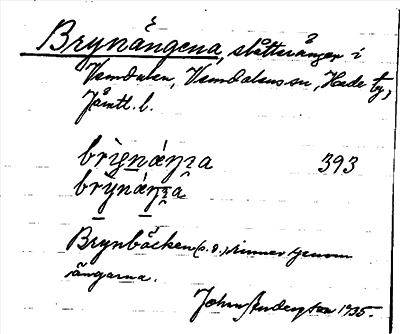 Brynängena, slåtterängar i
Vemdalen, Vemdalens sn, Hede ty,
Jämtl. l.
393
Brynbäcken (s. d.) rinner genom
ängarna.
John Andersson 1935.